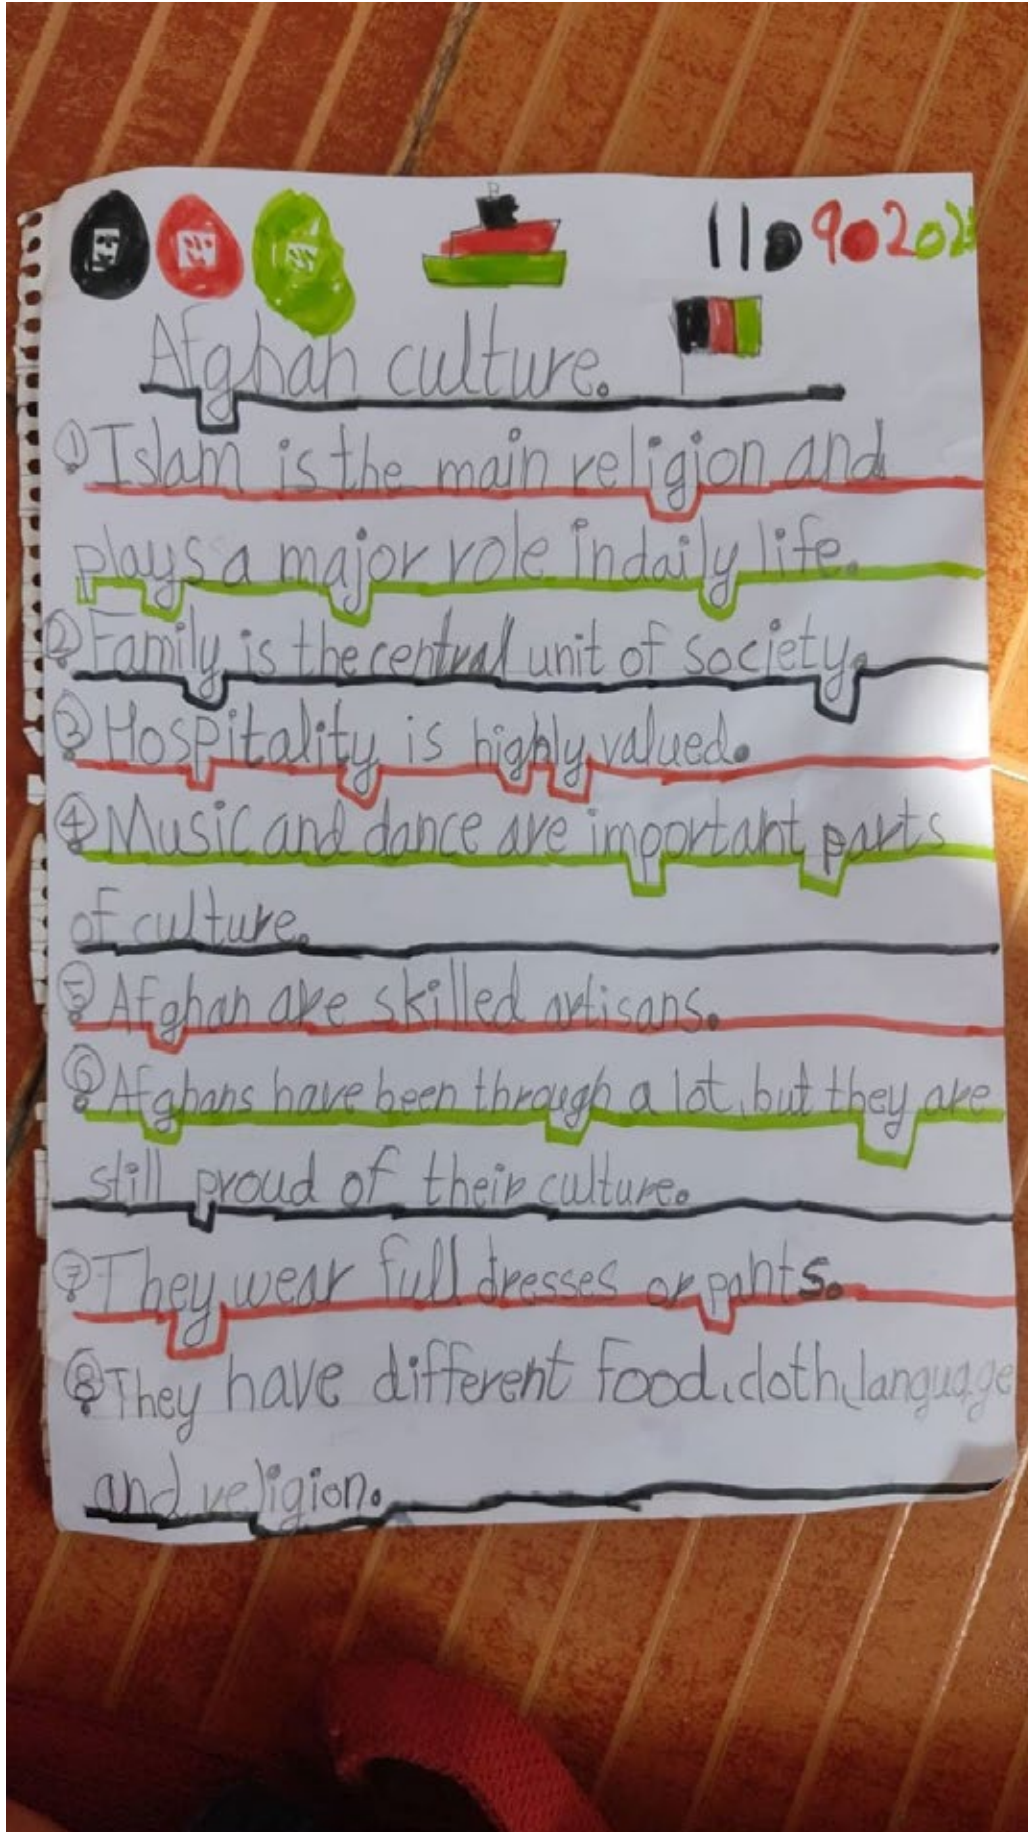 11 9 202
Afghan culture.
① Islam is the main religion and
plays a major role in daily life.
② Family is the central unit of society.
③ Hospitality is highly valued.
④ Music and dance are important parts
of culture.
⑤ Afghan are skilled artisans.
⑥ Afghans have been through a lot, but they are
still proud of their culture.
⑦ They wear full dresses or pants.
⑧ They have different food, cloth, language
and religion.